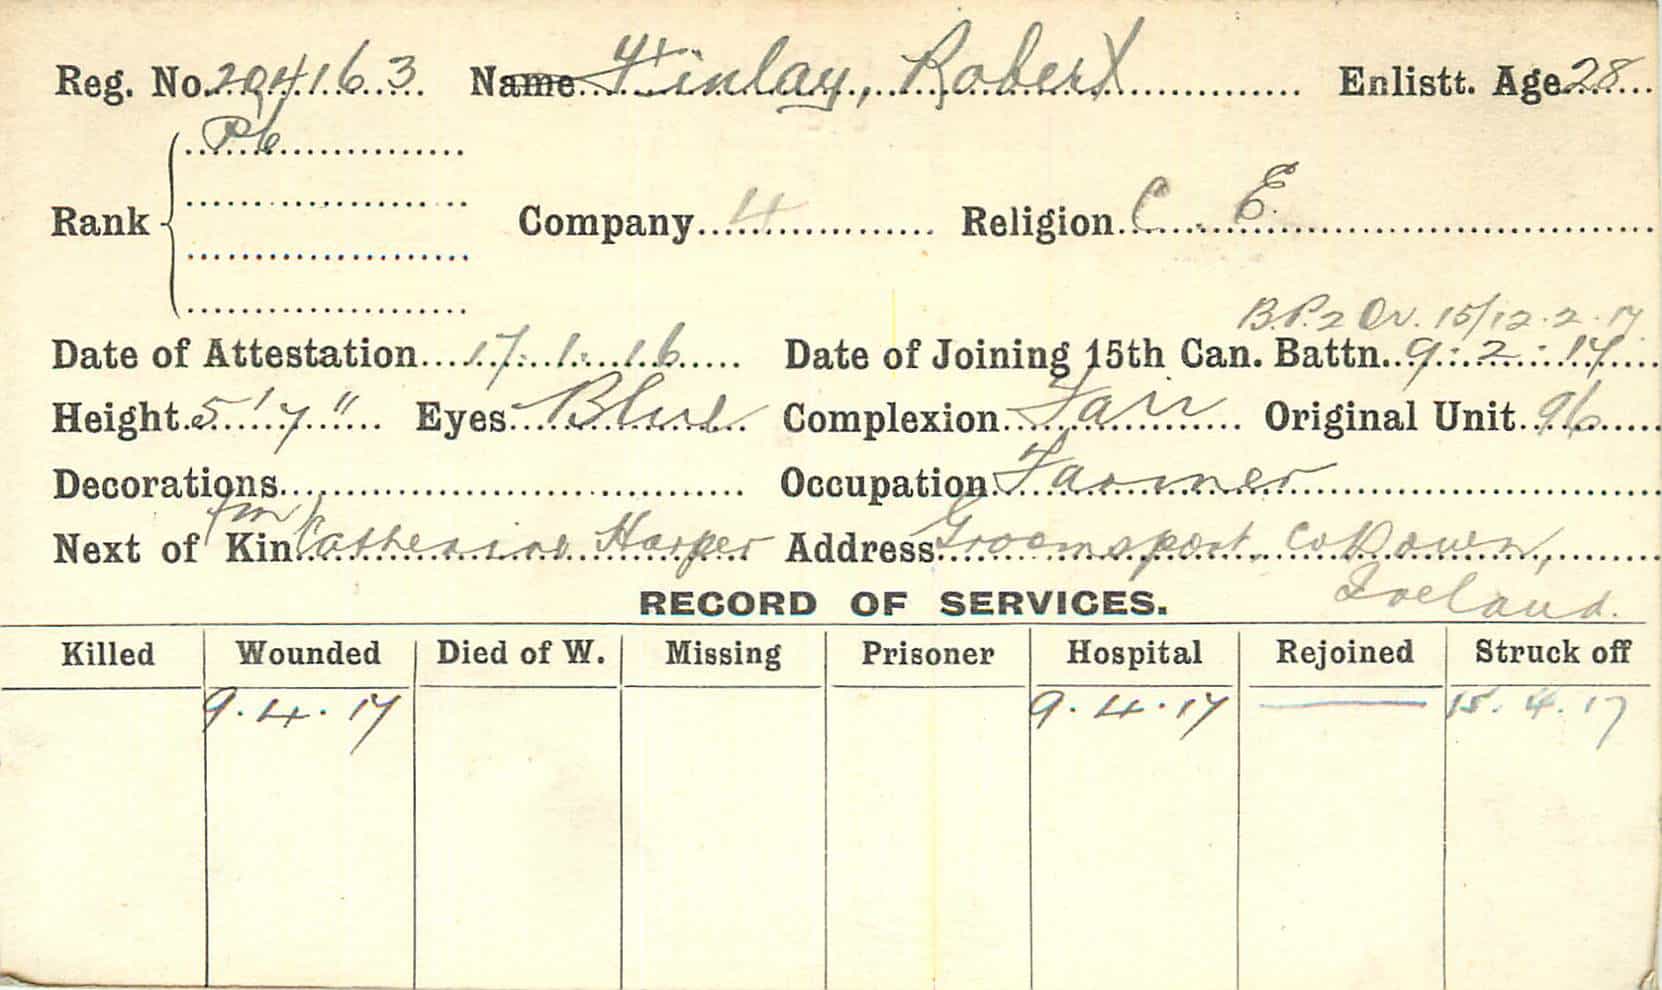 Reg. No. 204163 Name Finlay, Robert Enlistt. Age 28
Pte
Rank Company 4 Religion C. E.
B.P.2 Or. 15/12.2.17
Date of Attestation 17.1.16 Date of Joining 15th Can. Battn. 9.2.17
Height 5'7" Eyes Blue Complexion Fair Original Unit 96
Decorations Occupation Farmer
Next of Kin (m) Catherine Harper Address Groomsport, Co Down,
Ireland.
RECORD OF SERVICES.
Killed Wounded Died of W. Missing Prisoner Hospital Rejoined Struck off
9.4.17 9.4.17 15.4.17